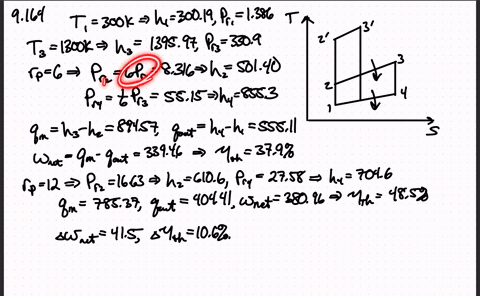 9.164 T₁ = 300K ⇒ h₁ = 300.19, Pr₁ = 1.386
T₃ = 1300K ⇒ h₃ = 1395.97, Pr₃ = 330.9
rp = 6 ⇒ Pr₂ = 6Pr₁ = 8.316 ⇒ h₂ = 501.40
Pr₄ = 1/6 Pr₃ = 55.15 ⇒ h₄ = 855.3
qin = h₃ - h₂ = 894.57, qout = h₄ - h₁ = 555.11
wnet = qin - qout = 339.46 ⇒ ηth = 37.9%
rp = 12 ⇒ Pr₂ = 16.63 ⇒ h₂ = 610.6, Pr₄ = 27.58 ⇒ h₄ = 704.6
qin = 785.37, qout = 404.41, wnet = 380.96 ⇒ ηth = 48.5%
Δwnet = 41.5, Δηth = 10.6%.
T
3'
2'
3
2
4
1
S